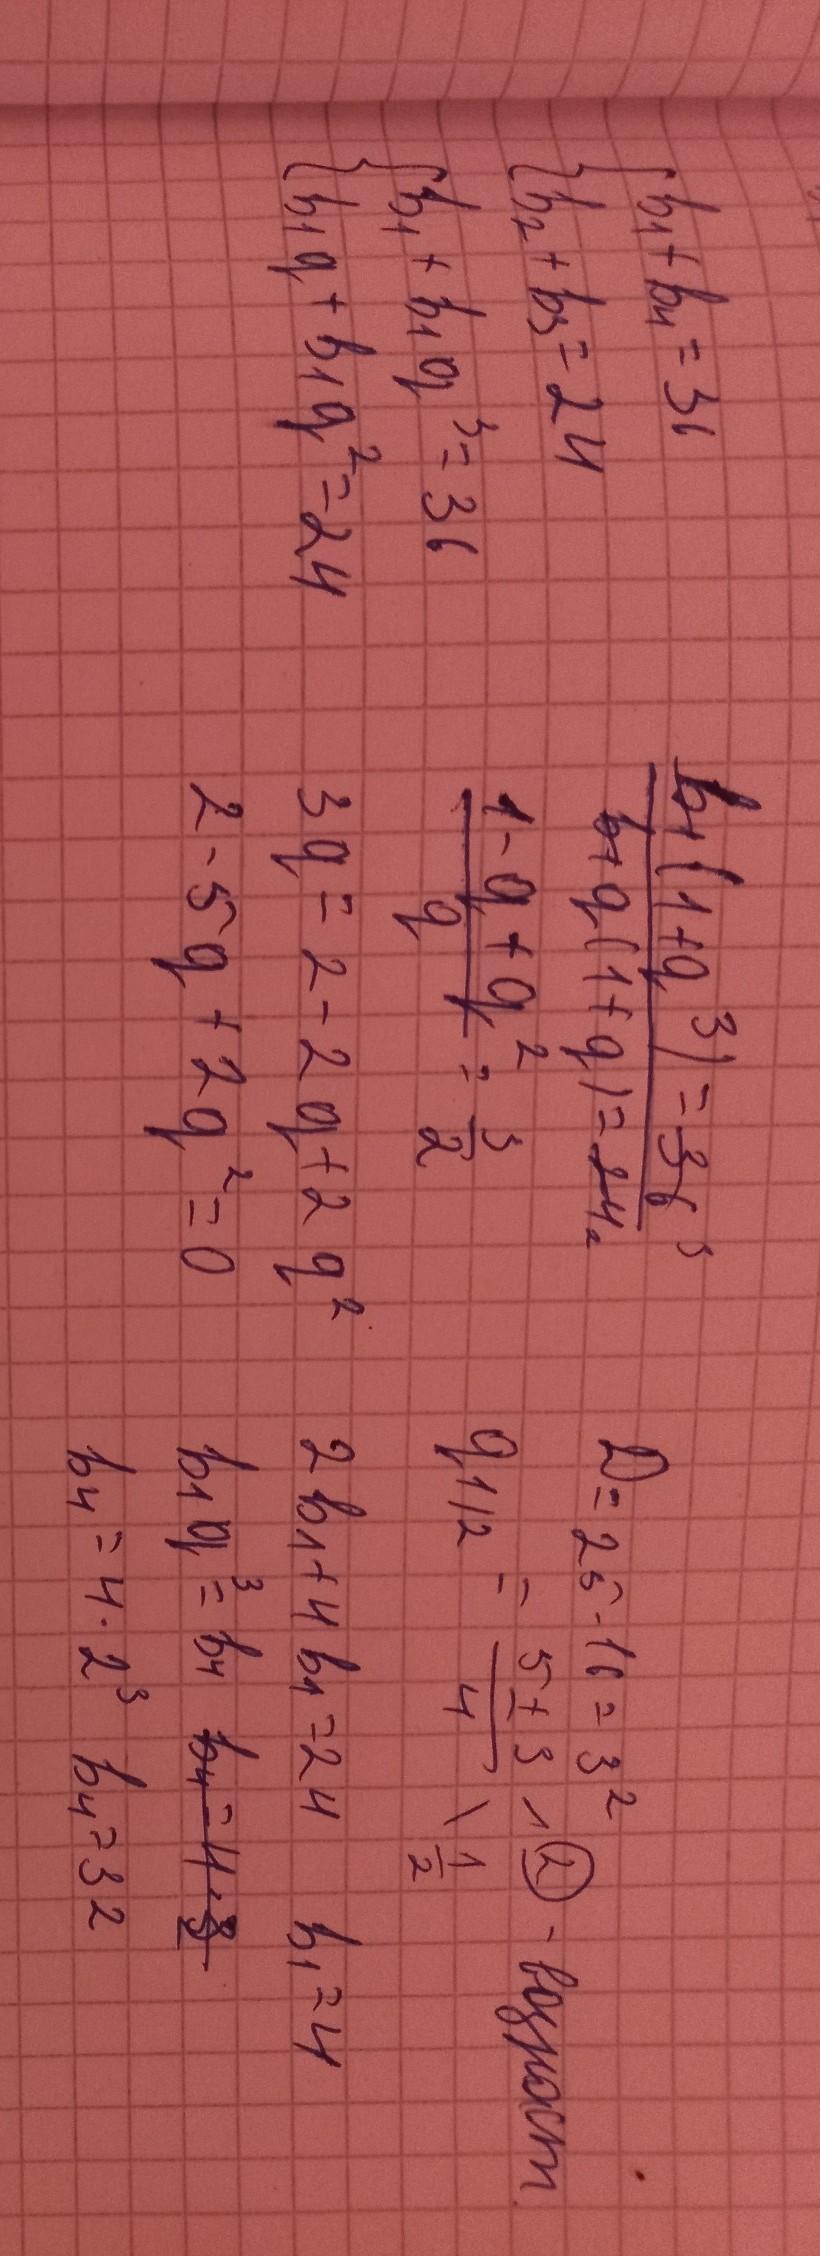 { b₁ + b₄ = 36
{ b₂ + b₃ = 24
{ b₁ + b₁q³ = 36
{ b₁q + b₁q² = 24
b₁(1+q³) = 36 3
b₁q(1+q) = 24 2
1-q+q² / q = 3/2
3q = 2-2q+2q²
2-5q+2q² = 0
D = 25-16 = 3²
q1/2 = 5±3 / 4 2 - возраст.
1/2
2b₁+4b₁ = 24 b₁ = 4
b₁q³ = b₄ b₄ = 4·8
b₄ = 4·2³ b₄ = 32